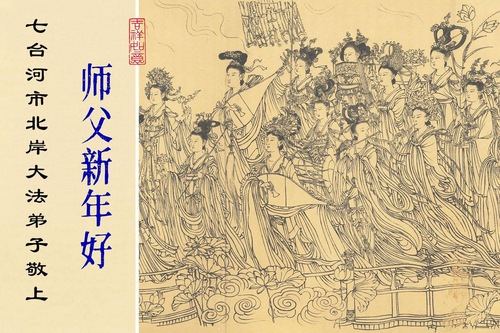 吉祥如意
师父新年好
七台河市北岸大法弟子敬上